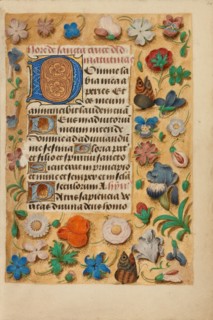 Hore de sancta cruce Ad
matutinas
Domine la
bia mea a
peries Et
os meum
annunciabit laudem tuam
Deus in adiutorium
meum intende
Domine ad adiuvandum
me festina Gloria patri
et filio et spiritui sancto
Sicut erat in principio
et nunc et semper et in secula
seculorum A
Patris sapientia ve
ritas divina deus homo